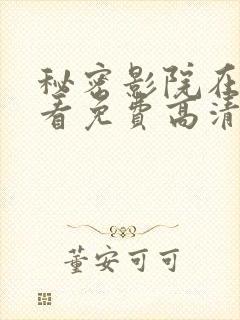 秘密影院在
看免费高清
董安可可